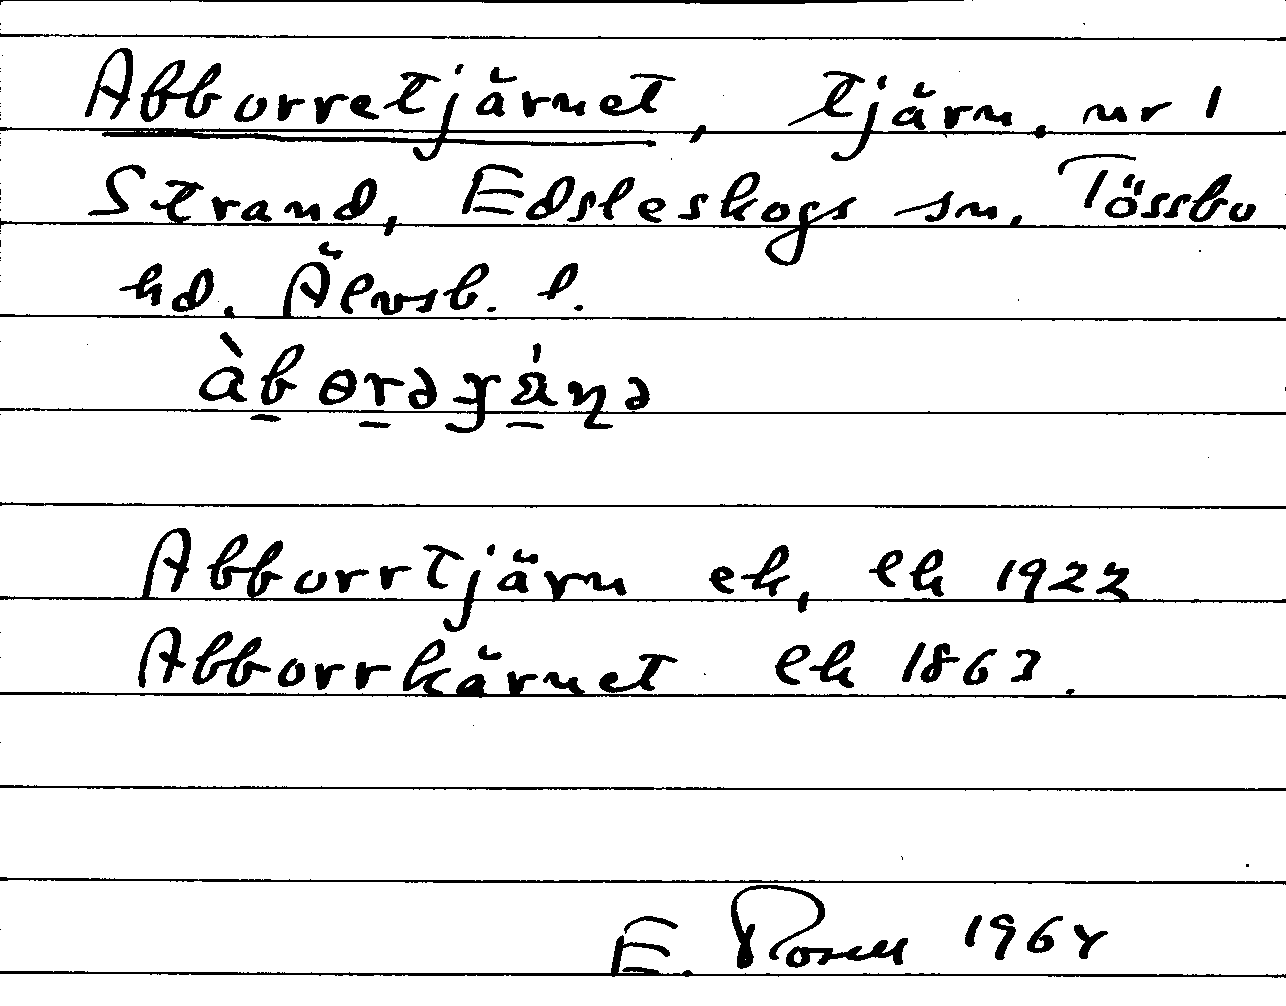 Abborretjärnet, tjärn, nr 1
Strand, Edsleskogs sn, Tössbo
hd. Älvsb. l.
àb̲ɵr̲əɟä̲́ɳə
Abborrtjärn ek, lk 1922
Abborrkärnet lk 1863.
E. Rosell 1964